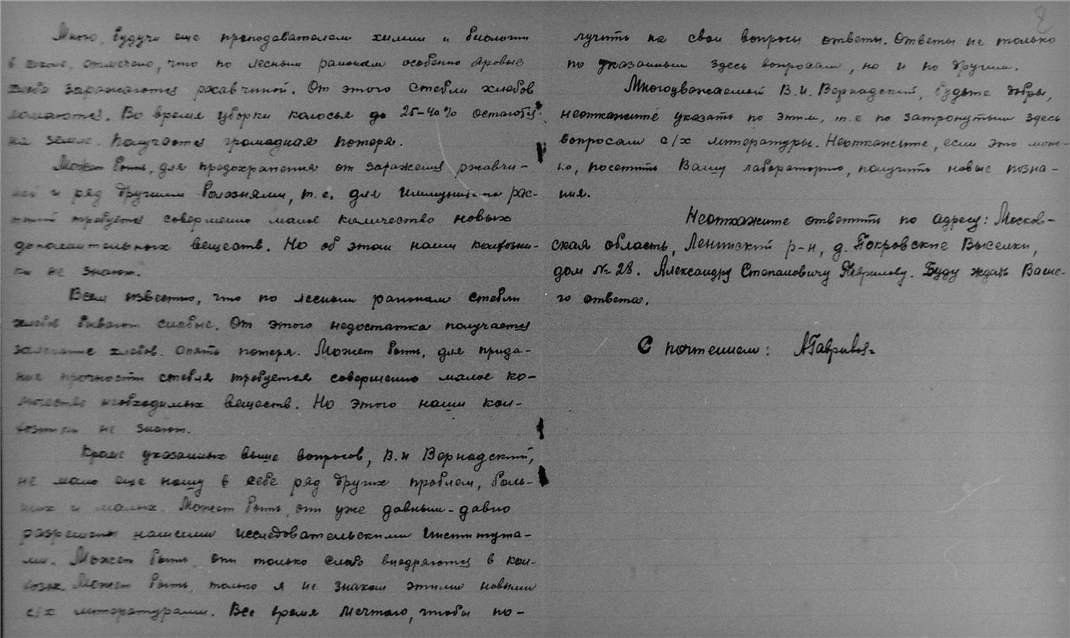 Мною, будучи еще преподавателем химии и биологии
в школе, отмечено, что по лесным районам особенно яровые
хлеба заражаются ржавчиной. От этого стебли хлебов
ломаются. Во время уборки колосья до 25-40% остаются
на земле. Получается громадная потеря.
Может быть, для предохранения от заражения ржавчи-
ной и ряд другими болезнями, т.е. для
требуется совершенно малое количество новых
дополнительных веществ. Но об этом наши колхозни-
ки не знают.
Всем известно, что по лесным районам стебли
хлебов бывают слабые. От этого недостатка получается
залегание хлебов. Опять потеря. Может быть, для прида-
ния прочности стебля требуется совершенно малое ко-
личество необходимых веществ. Но этого наши кол-
хозники не знают.
Кроме указанных выше вопросов, В.И Вернадский,
не мало еще ношу в себе ряд других проблем, боль-
ших и малых. Может быть, они уже давным-давно
разрешены нашими исследовательскими института-
ми. Может быть они только слабо внедряются в кол-
хозах. Может быть, только я не знаком этими новыми
с/х литературами. Все время мечтаю, чтобы по-
8
лучить на свои вопросы ответы. Ответы не только
по указанным здесь вопросам, но и по другим.
Многоуважаемый В.И. Вернадский, будьте добры,
неоткажите указать по этим, т.е по затронутым здесь
вопросам с/х литературы. Неоткажите, если это мож-
но, посетить Вашу лабораторию, получить новые позна-
ния.
Неоткажите ответить по адресу: Москов-
ская область, Ленинский р-н, д. Покровские Выселки,
дом № 28. Александру Степановичу Гаврилову. Буду ждать Ваше-
го ответа.
С почтением: АГаврилов